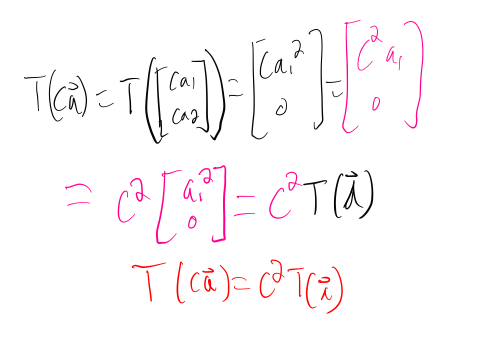 T(ca⃗) = T([ca₁ ca₂]) = [ca₁² 0] = [c²a₁ 0]
= c² [a₁² 0] = c² T(a⃗)
T(ca⃗) = c² T(a⃗)